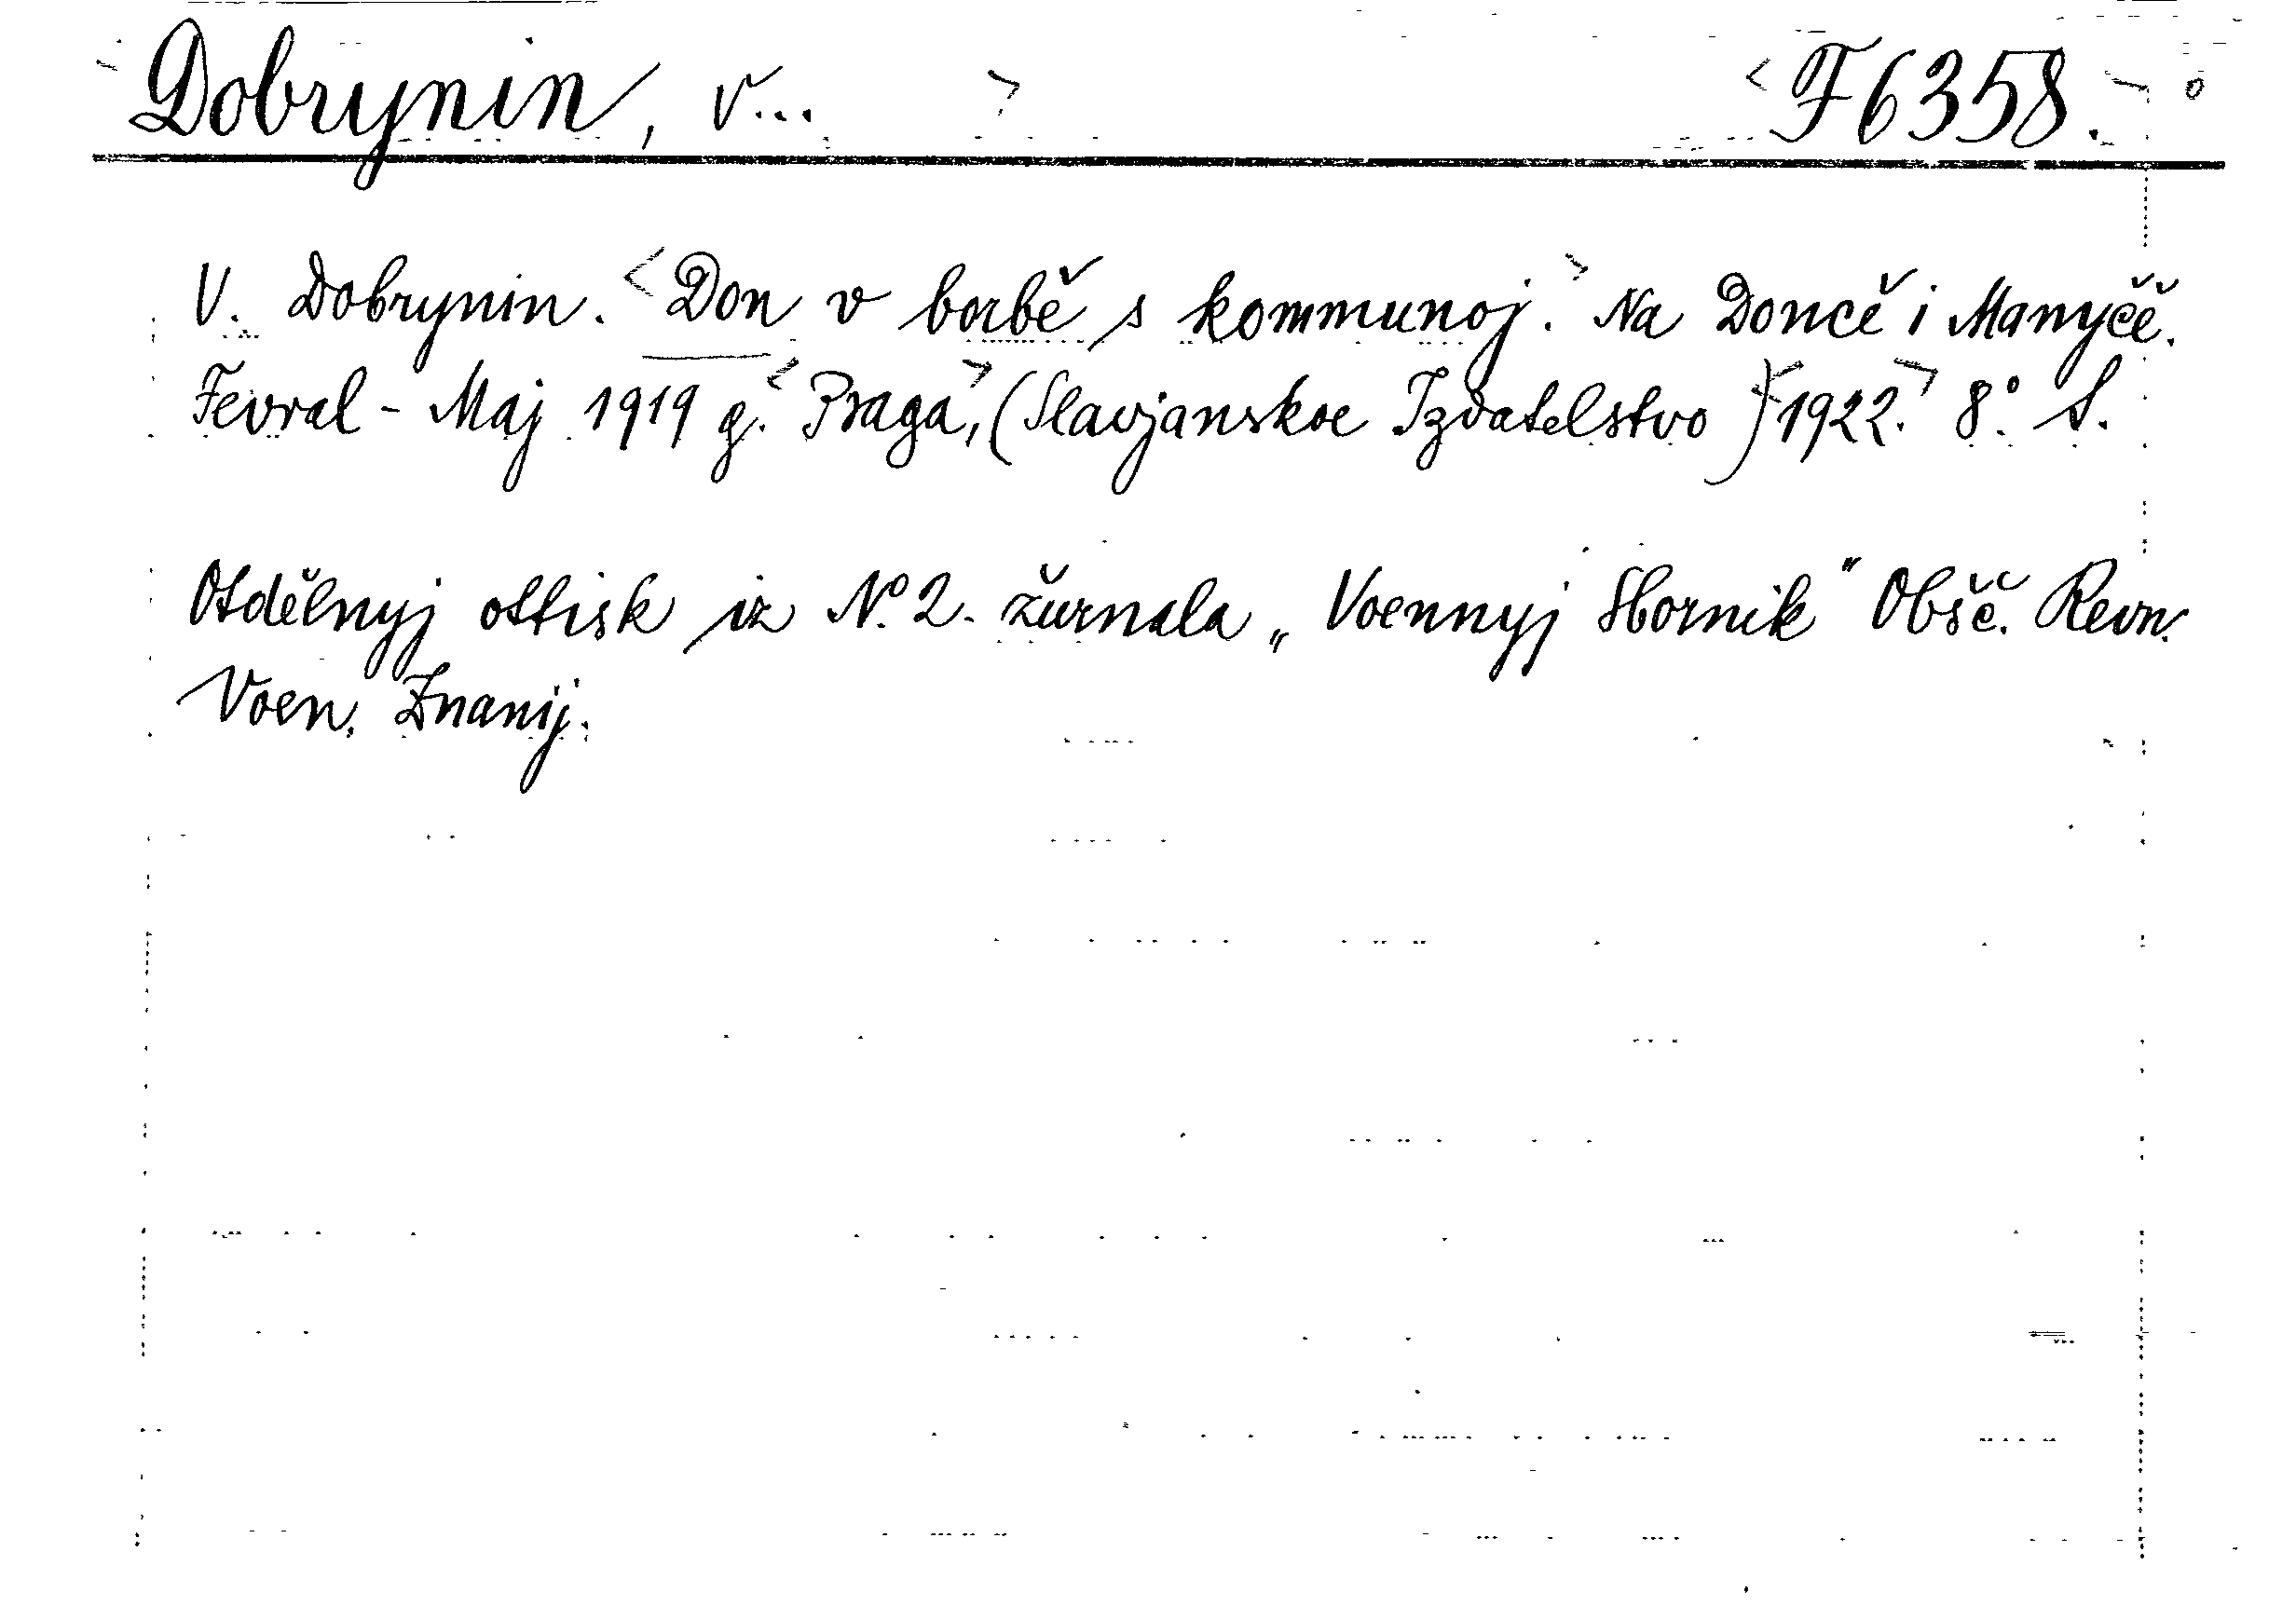 Dobrynin, V... F6358.
V. Dobrynin. <Don v borbě s kommunoj.> Na Doncě i Manyčě.
Fevral - Maj 1919 g. <Praga,> (Slavjanskoe Izdatelstvo) <1922.> 8° S.
Otdělnyj ottisk iz No 2. žurnala „Voennyj Sbornik" Obšč. Revn.
Voen. Znanij.